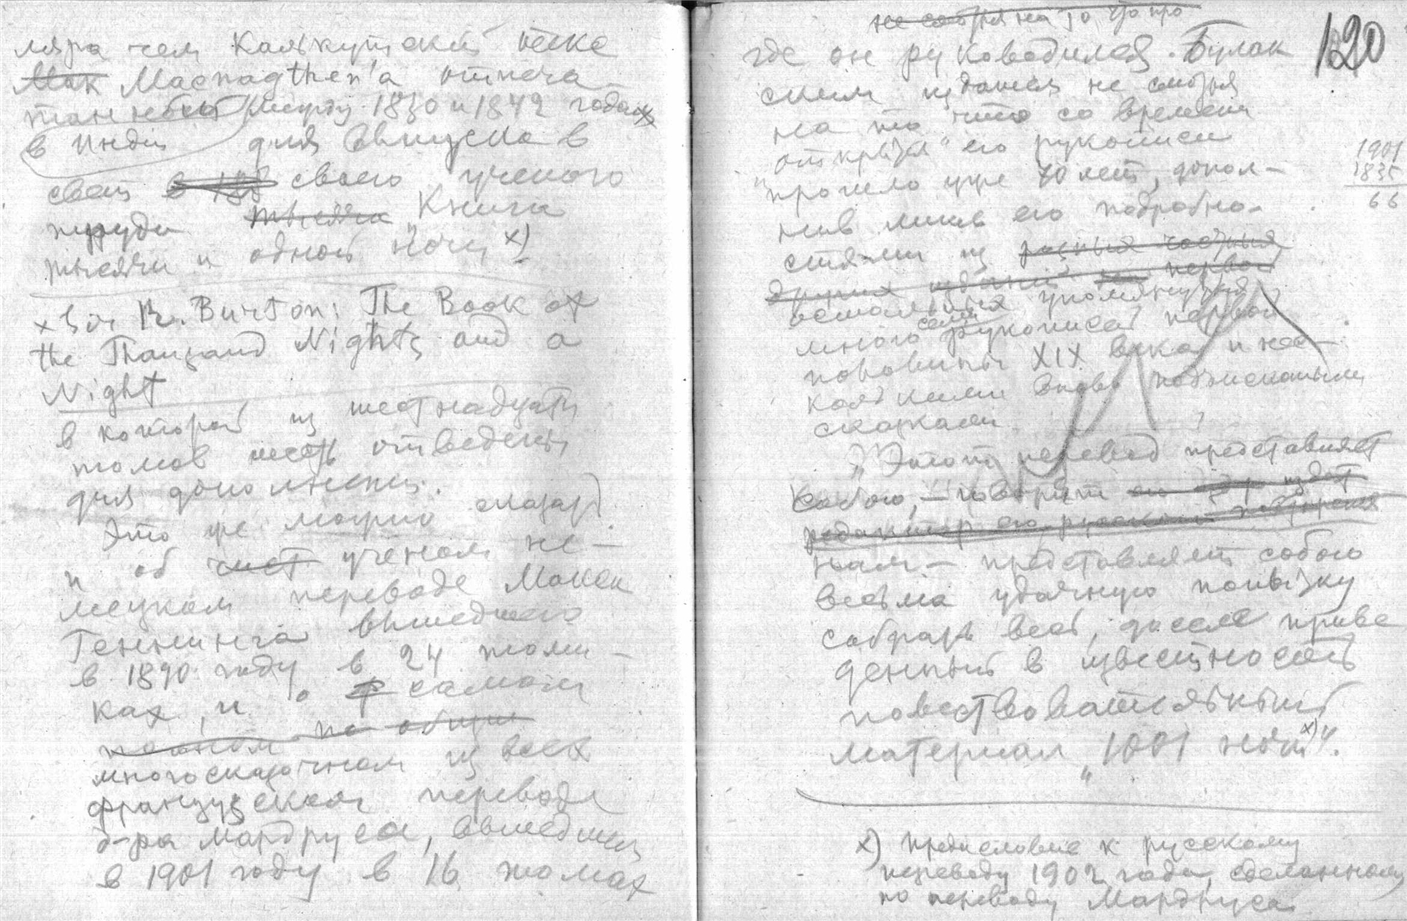 ляра чем Калькутской теке
Мак Macnagthen'a отпеча
тан между 1830 и 1842 годах
в Индии для выпуска в
свет своего ученого
труда тысяча „Книга
тысячи и одной ночи x)
x Sir R. Burton: The Book of
the Thauzand Nights and a
Night
в которой из шестнадцати
томов шесть отведены
для дополнений.
Это же можно сказать
и об ученом не—
мецком переводе Макса
Геннинга вышедшего
в 1890 году в 24 томи—
ках, и о самом
полном по общие
многосказочном из всех
французском переводе
д-ра Мардруса, вышедшем
в 1901 году в 16 томах
не смотря на то, что про
где он руководился Булак
120
ским изданием не смотря
на то что со времени
открытия его рукописи
прошло уже 70 лет, допол—
1901
1835
66
нив лишь его подробно—
стями из разных частных
других изданий первой
упомянутых
много рукописей первой
половины XIX века и не—
сколькими вновь подысканными
сказками.
„Этот перевод представляет
собою, — говорит
редактор его русской
нам — представляет собою
весьма удачную попытку
собрать весь, доселе приве
денный в известность
повествовательный
материал „1001 ночи x)".
x) Предисловие к русскому
переводу 1902 года, сделанному
по переводу Мардруса